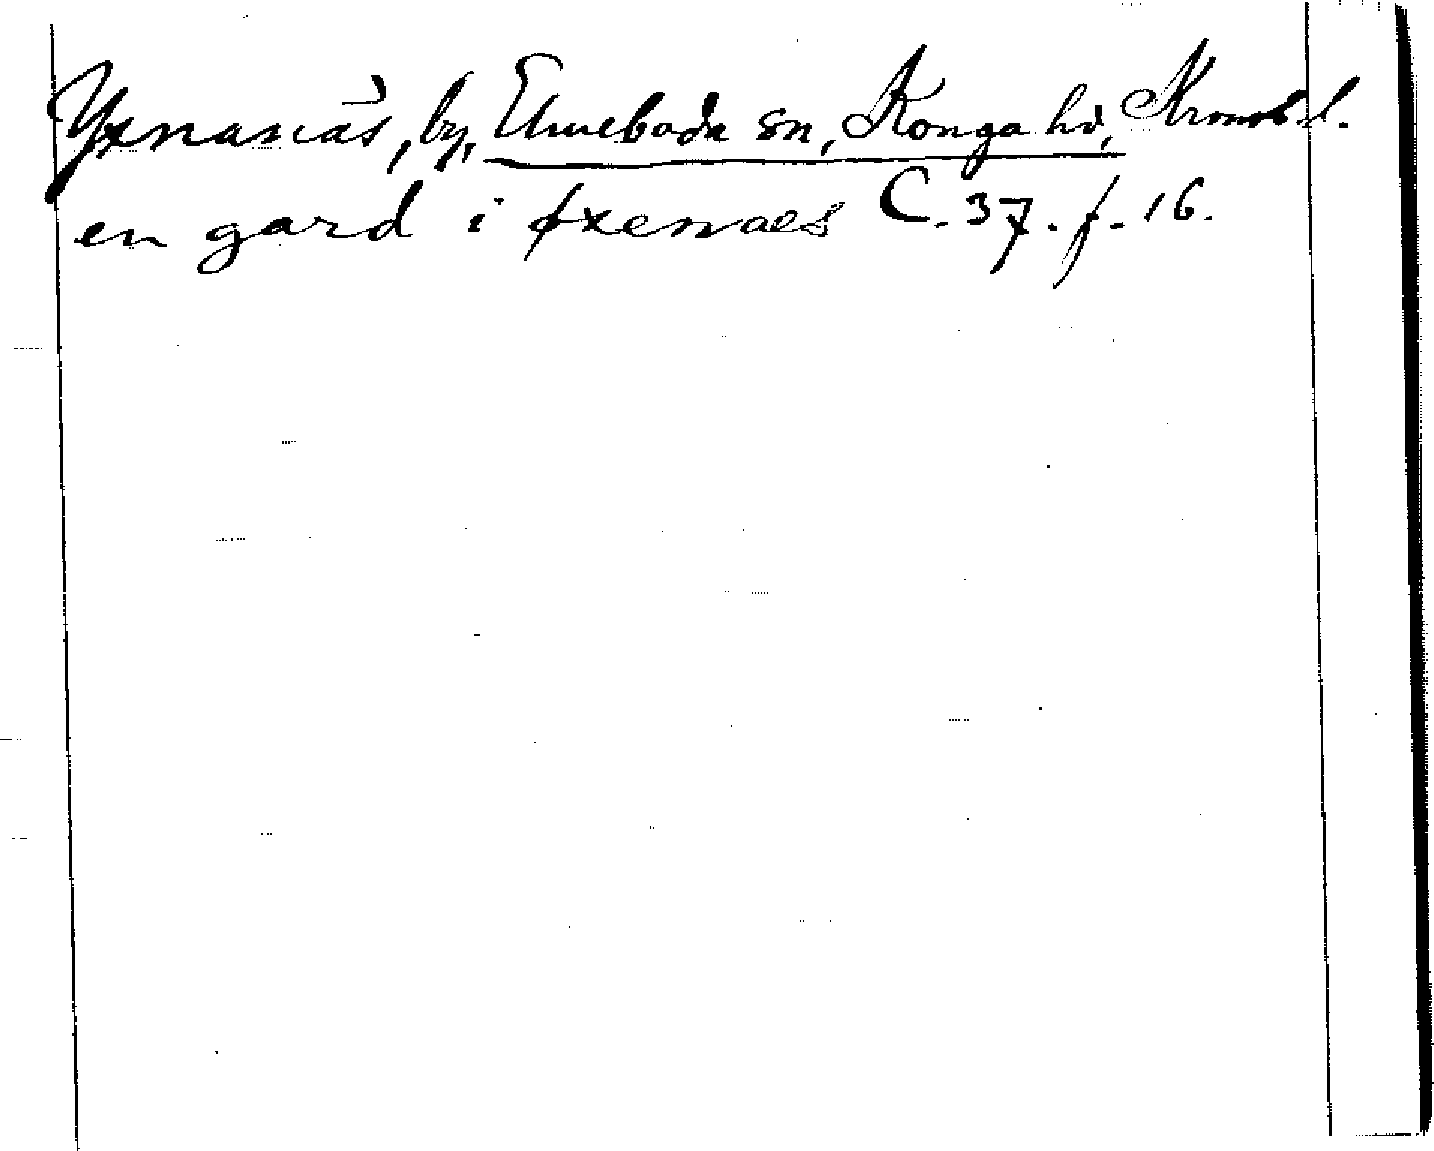 Yxnanäs, by, Elmeboda sn, Konga hd, Kronob. l.
en gard i øxenaes C. 37. f. 16.